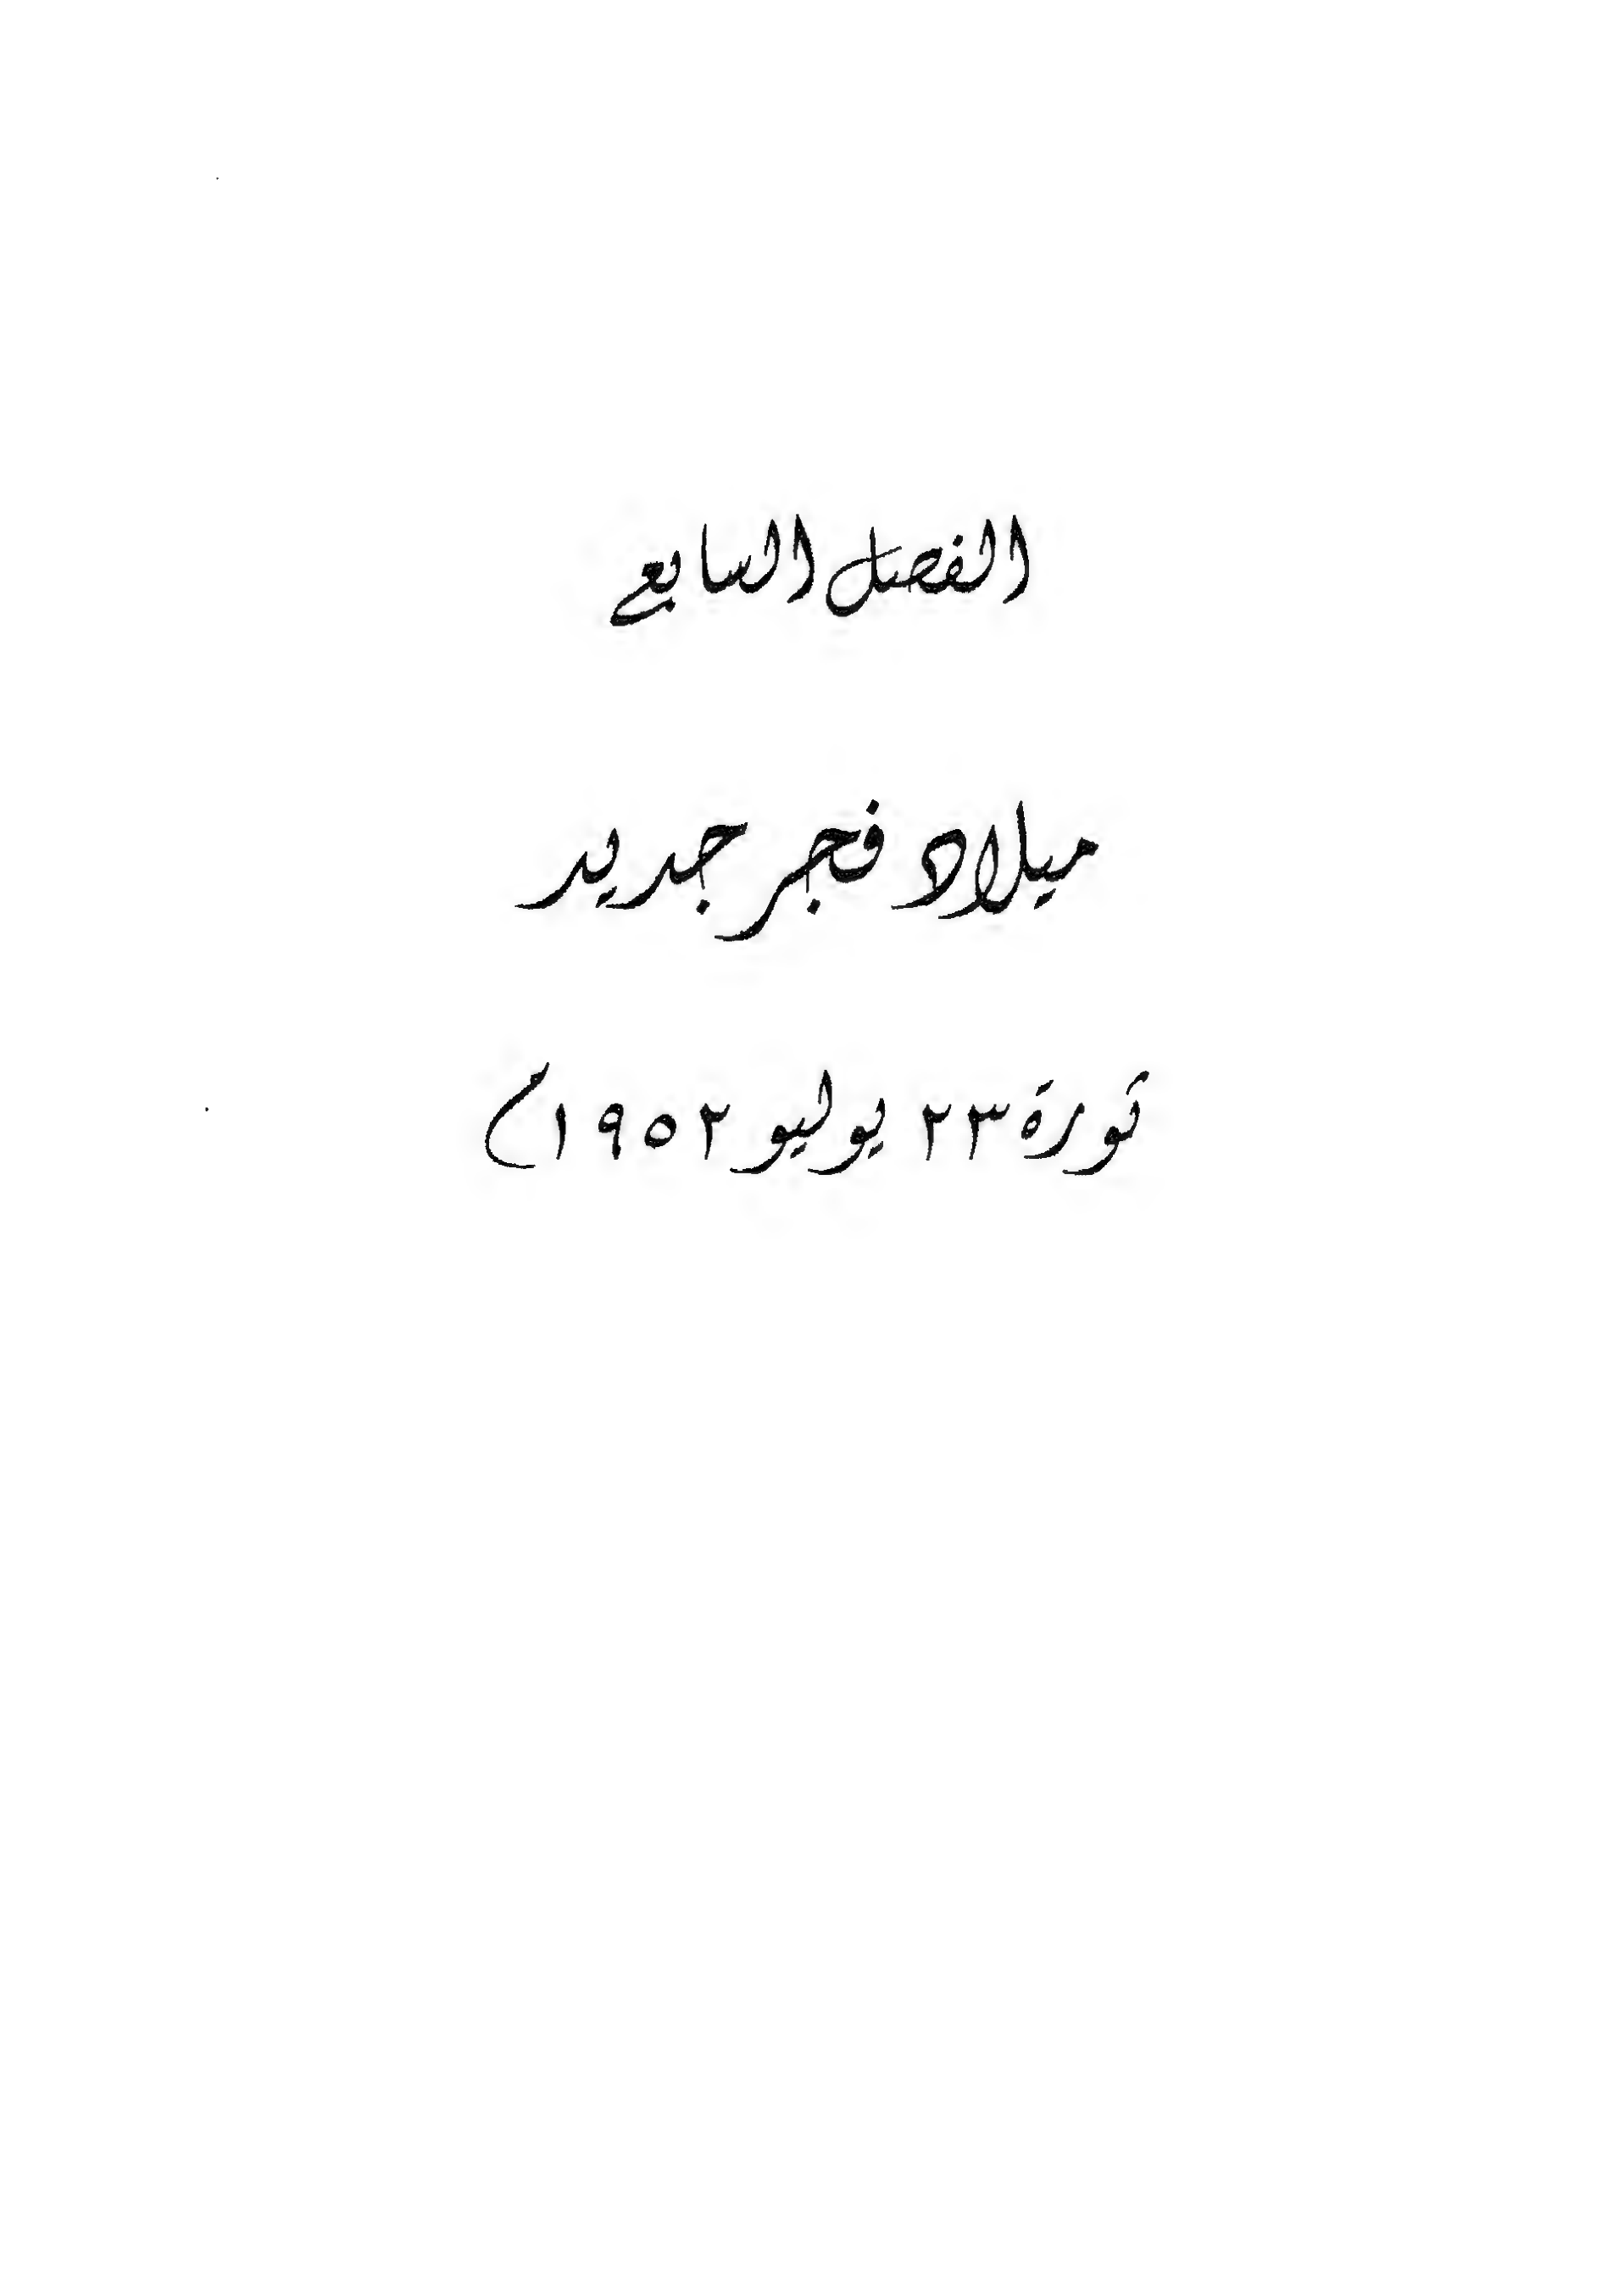 الفصل السابع
ميلاد فجر جديد
ثورة ٢٣ يوليو ١٩٥٢م